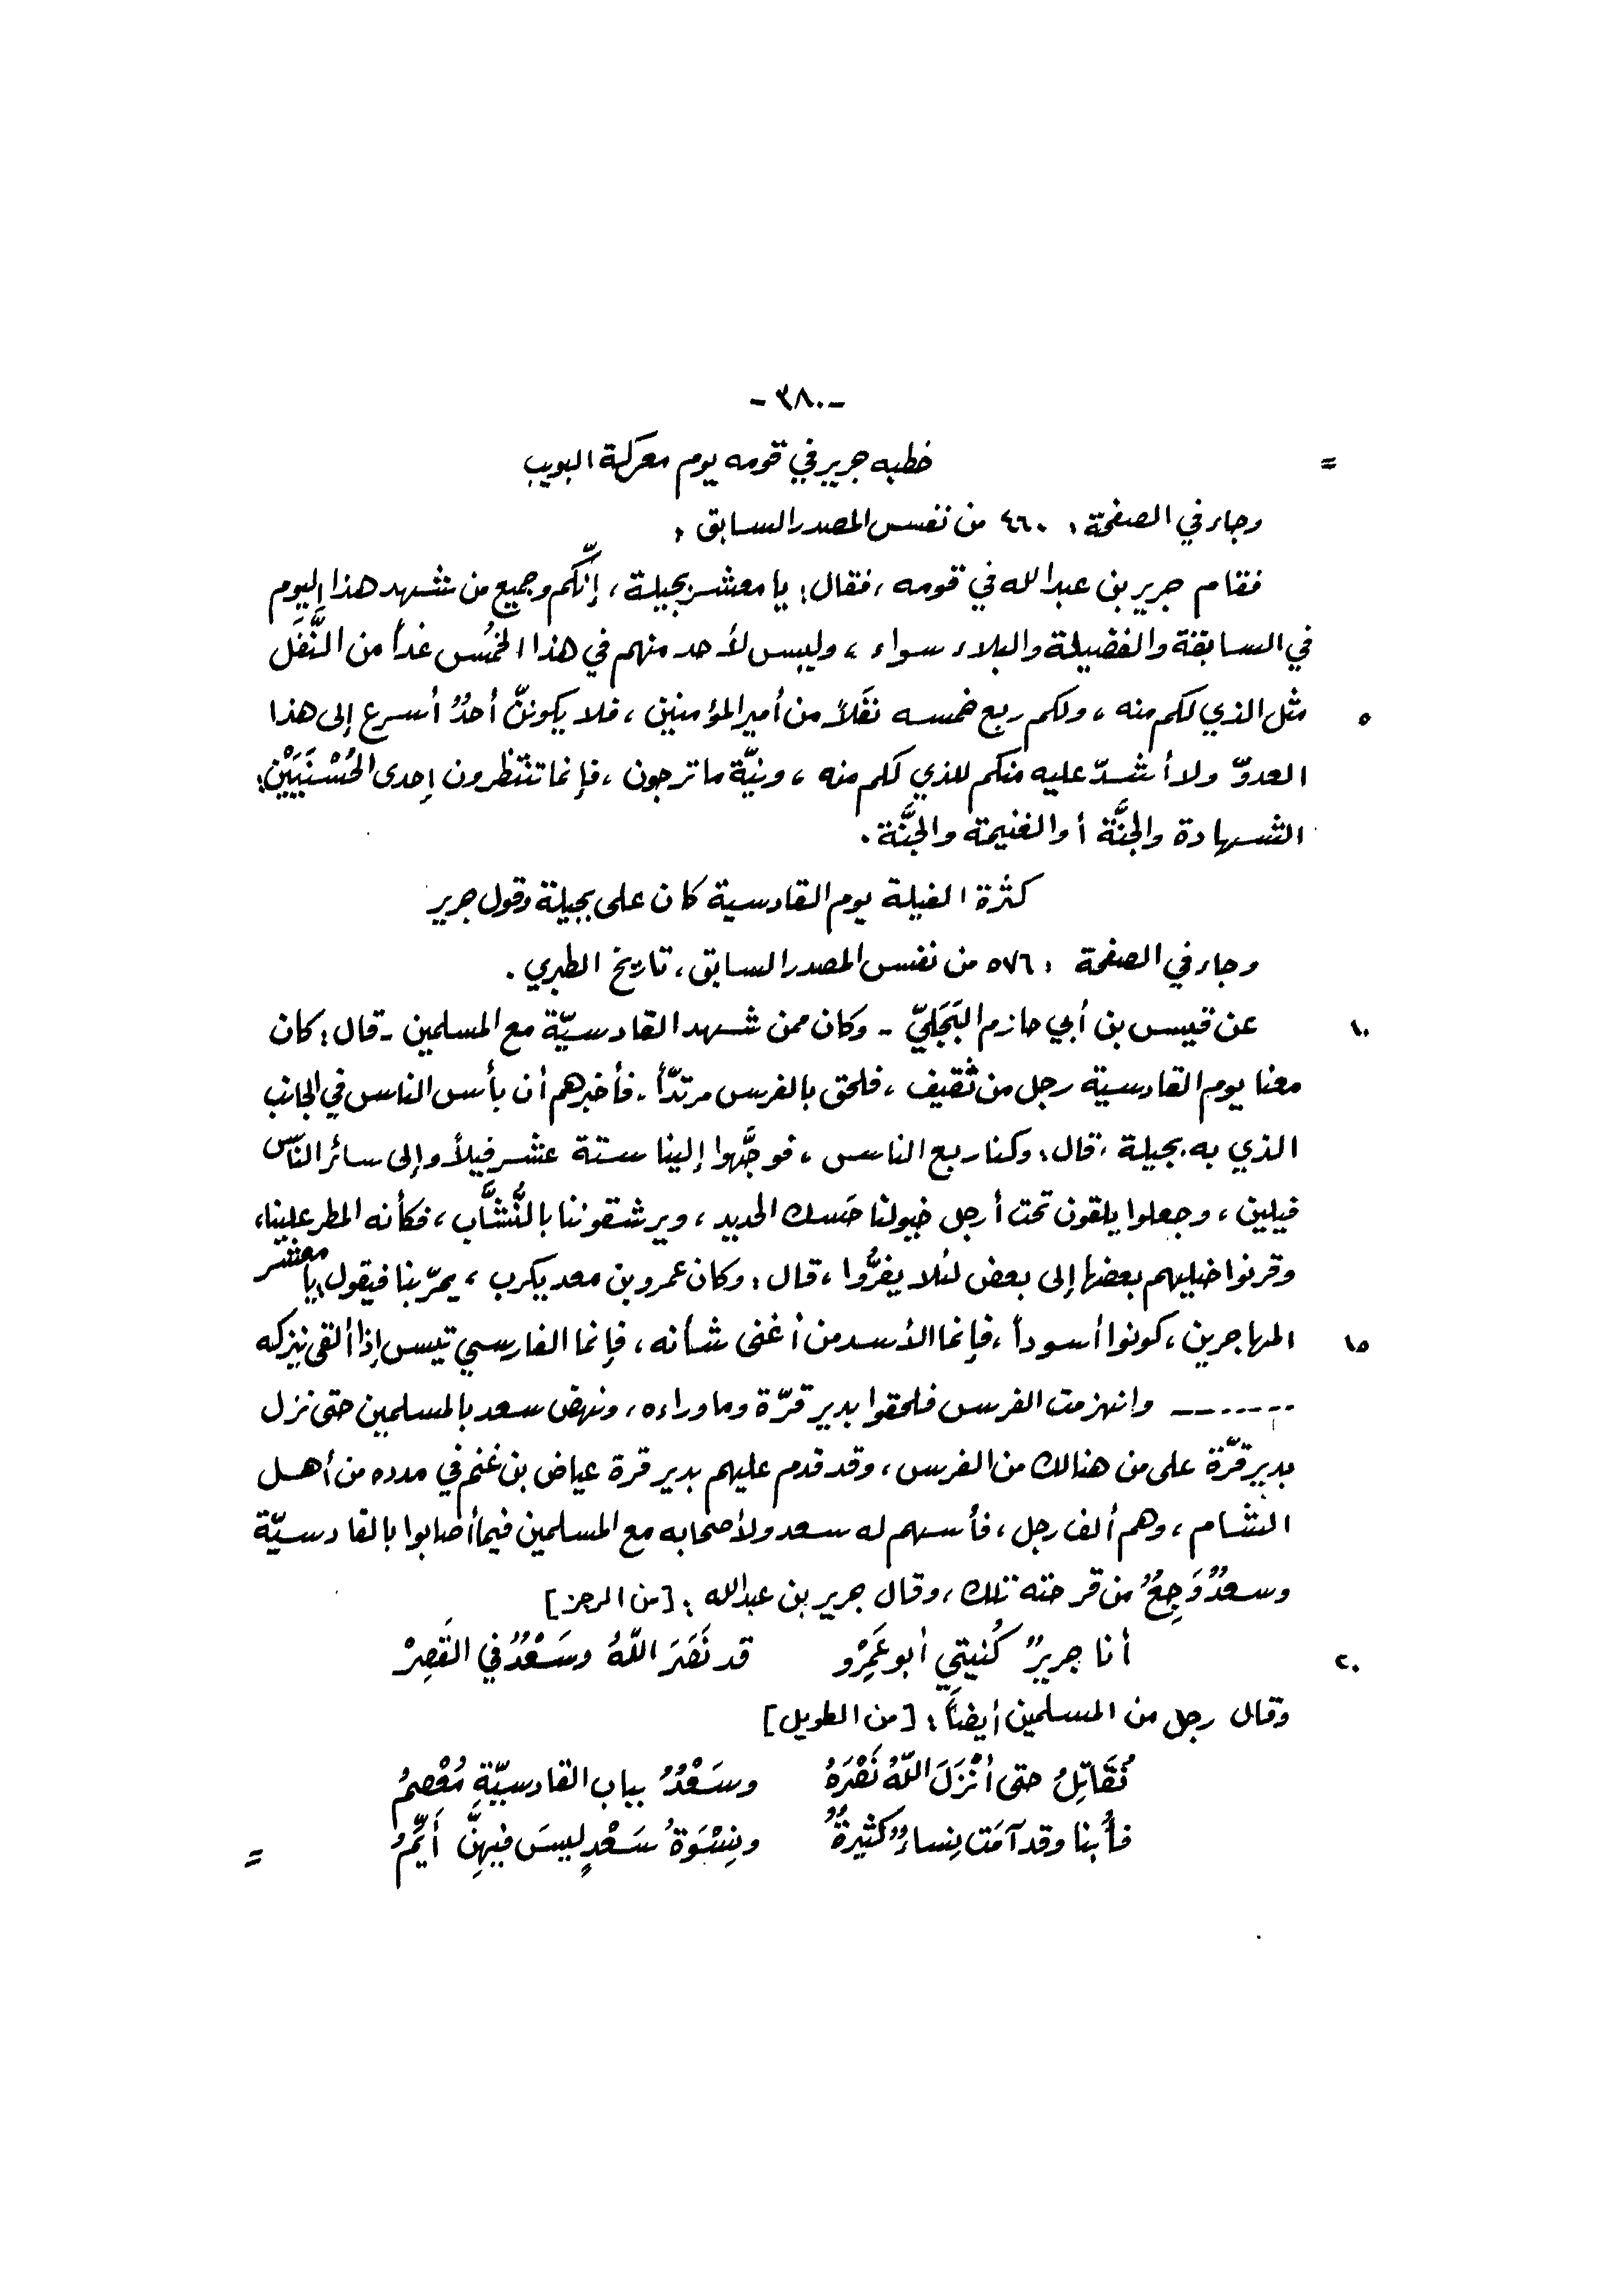 -٣٨٠-
= خطبه جرير في قومه يوم معركة البويب
وجاء في الصفحة: ٤٦٠ من نفس المصدر السابق:
فقام جرير بن عبدالله في قومه، فقال: يا معشر بجيلة، إنّكم وجميع من شهد هذا اليوم
في السابقة والفضيلة والبلاء سواء، وليس لأحد منهم في هذا الخمُس غداً من النَّفَل
٥ مثل الذي لكم منه، ولكم ربع خمسه نَفَلاً من أمير المؤمنين، فلا يكوننّ أحدٌ أسرع إلى هذا
العدوّ ولا أشدّ عليه منكم للذي لكم منه، ونيّة ما ترجون، فإنما تنتظرون إحدى الحُسْنَيَيْن:
الشهادة والجنَّة أو الغنيمة والجنَّة.
كثرة الفيلة يوم القادسية كان على بجيلة وقول جرير
وجاء في الصفحة: ٥٧٦ من نفس المصدر السابق، تاريخ الطبري.
١٠ عن قيس بن أبي حازم البَجَليّ - وكان ممن شهد القادسيّة مع المسلمين - قال: كان
معنا يوم القادسية رجل من ثقيف، فلحق بالفرس مرتدّاً. فأخبرهم أن بأس الناس في الجانب
الذي به بجيلة، قال: وكنا ربع الناس، فوجَّهوا إلينا ستة عشر فيلاً وإلى سائر النّاس
فيلين، وجعلوا يلقون تحت أرجل خيولنا حَسك الحديد، ويرشقوننا بالنُّشَّاب، فكأنه المطر علينا،
وقرنوا خيليهم بعضها إلى بعض لئلا يفرُّوا، قال: وكان عمرو بن معد يكرب، يمرّ بنا فيقول: يا معشر
١٥ المهاجرين، كونوا أسوداً، فإنما الأسد من أغنى شأنه، فإنما الفارسي تيس إذا ألقى نيزكه
....... وانهزمت الفرس فلحقوا بدير قرّة وما وراءه، ونهض سعد بالمسلمين حتى نزل
بدير قرّة على من هنالك من الفرس، وقد قدم عليهم بدير قرة عياض بن غنم في مدده من أهل
الشام، وهم ألف رجل، فأسهم له سعد ولأصحابه مع المسلمين فيما أصابوا بالقادسيّة
وسعدٌ وَجِعٌ من قرحته تلك، وقال جرير بن عبدالله: [من الرجز]
٢٠ أنا جريرٌ كُنيتي أبو عَمِرْو قد نَصَرَ اللّهُ وسَعْدٌ في القَصِرْ
وقال رجل من المسلمين أيضاً: [من الطويل]
نُقَاتِلُ حتى أنْزَلَ اللّهُ نَصْرَهُ وسَعْدٌ بباب القادسيّةِ مُعْصِمُ
فأُبنا وقد آمَت نِساءٌ كثيرةٌ ونِسْوَةُ سَعْدٍ ليسَ فيهِنَّ أَيِّمُ =